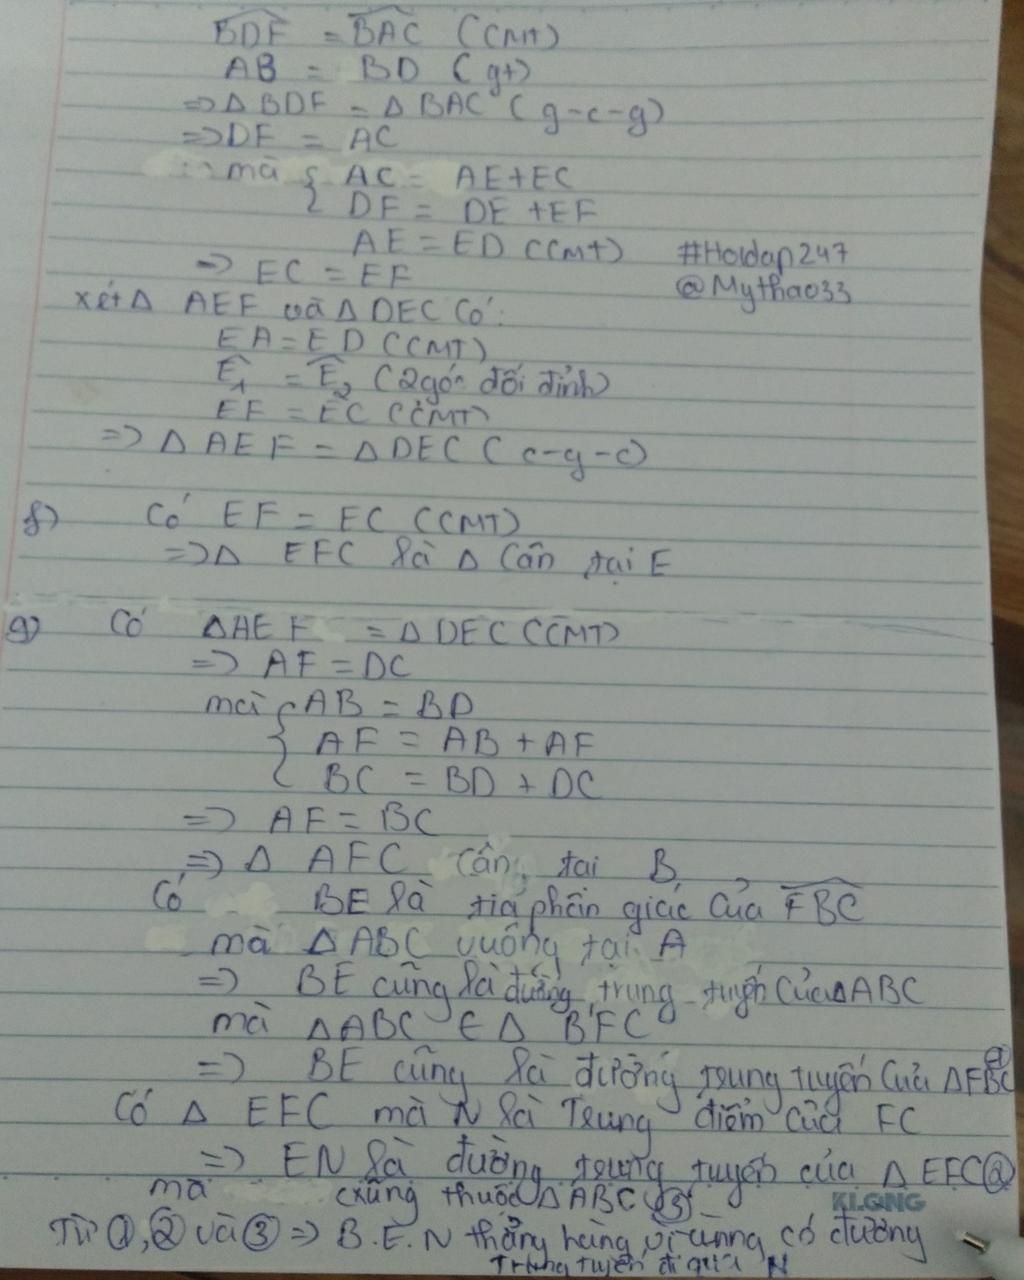 BDF = BAC (CMT)
AB = BD (gt)
=> Δ BDF = Δ BAC (g-c-g)
=> DF = AC
mà { AC = AE+EC
DF = DE +EF
AE = ED (CMT) #Hoidap247
=> EC = EF @Mythao33
xét Δ AEF và Δ DEC Có:
EA = ED (CMT)
E1 = E2 (2 góc đối đỉnh)
EF = EC (CMT)
=> Δ AEF = Δ DEC (c-g-c)
f) Có EF = EC (CMT)
=> Δ EFC là Δ Cân tại E
g) Có ΔAEF = Δ DEC (CMT)
=> AF = DC
mà { AB = BD
AF = AB + AF
BC = BD + DC
=> AF = BC
=> Δ AFC Cân tai B
Có BE là tia phân giác Của FBC
mà Δ ABC vuông tại A
=> BE cũng là đường trung tuyến Của Δ ABC
mà Δ ABC E Δ BFC
=> BE cũng là đường trung tuyến Của Δ FBC
Có Δ EFC mà N là Trung điểm của FC
=> EN là đường trung tuyến của Δ EFC ②
mà cũng thuộc Δ ABC ③
KLONG
Từ ①, ② và ③ => B.E.N thẳng hàng vì cùng có đường
Trung tuyến đi qua N